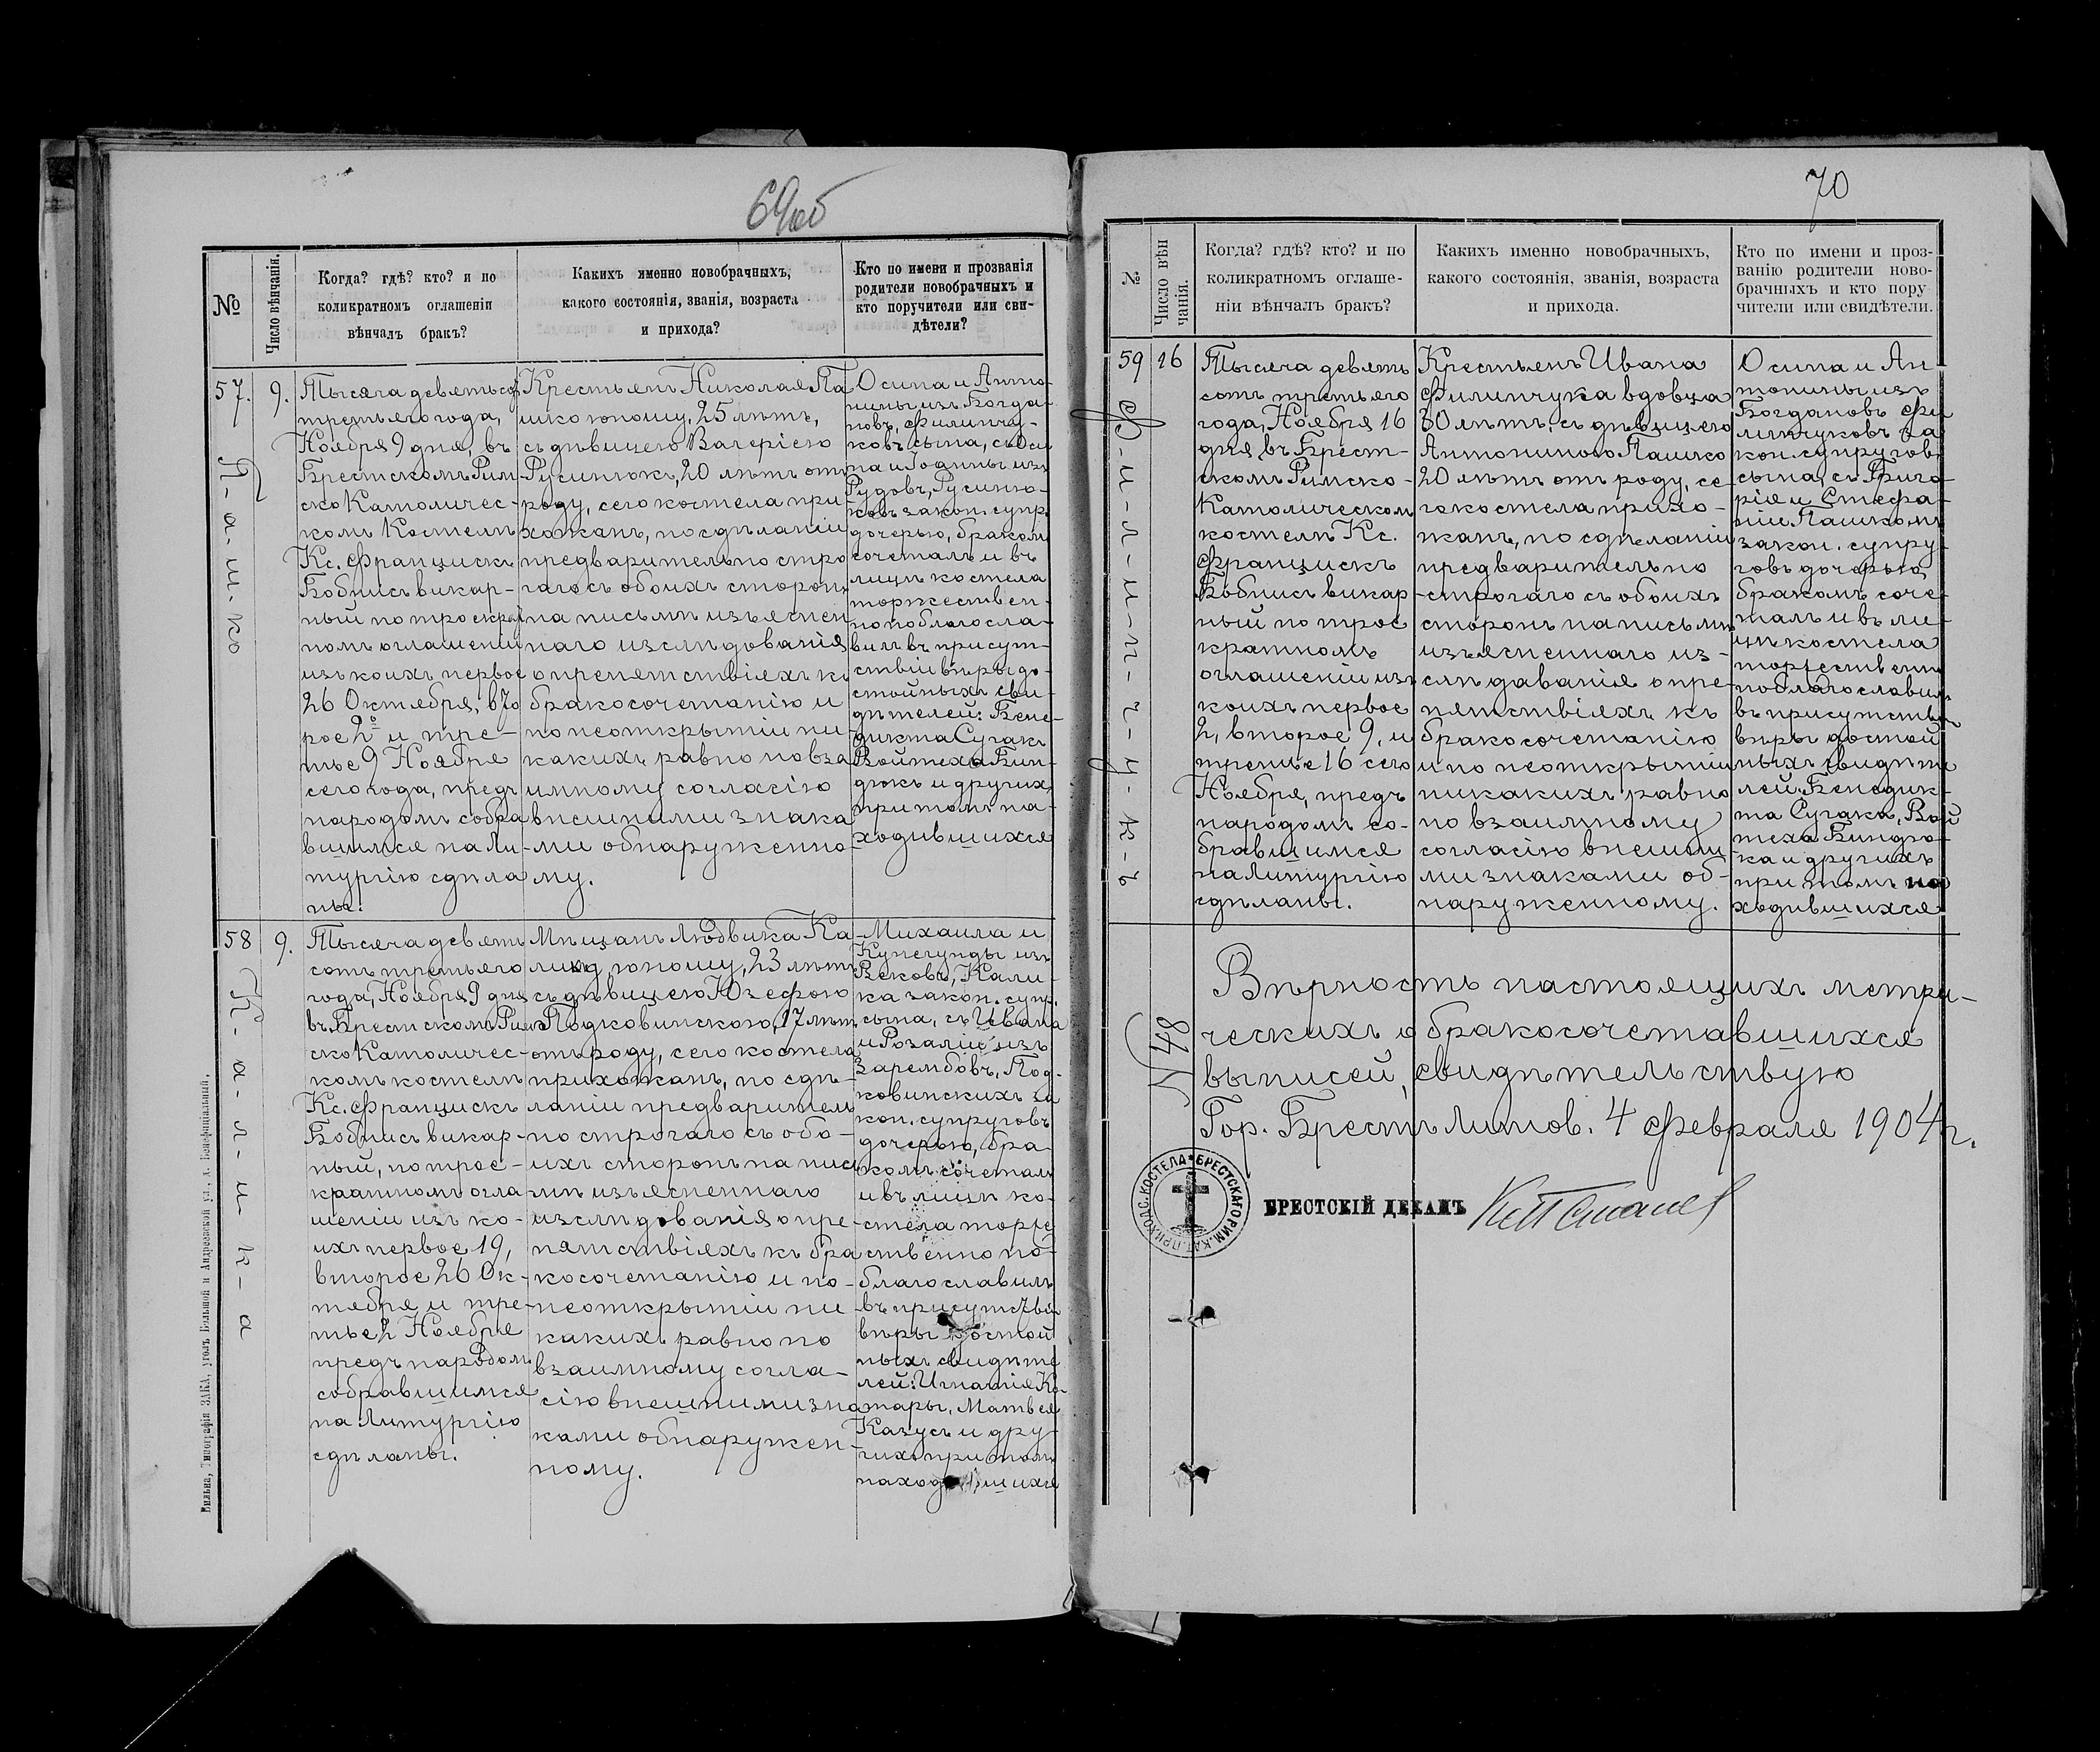 69об
№
Число вѣнчанія.
Когда? гдѣ? кто? и по
коликратномъ оглашеніи
вѣнчалъ бракъ?
Какихъ именно новобрачныхъ,
какого состоянія, званія, возраста
и прихода?
Кто по имени и прозванія
родители новобрачныхъ и
кто поручители или сви-
дѣтели?
57.
П-а-ш-ко
9.
Тысяча девятьсот
третьяго года,
Ноября 9 дня, въ
Брестскомъ Рим-
ско Католичес-
комъ Костелѣ
Кс. Францискъ
Бобнисъ викар-
ный по троекрат
номъ оглашеніи
изъ коихъ первое
26 Октября, вто
рое 2º и тре-
тье 9 Ноября
сего года, предъ
народомъ собра
вшимся на Ли-
тургію сдѣла
ны.
Крестьянъ Николая Па
шко юношу, 25 лѣтъ,
съ дѣвицею Валеріею
Русинюкъ, 20 лѣтъ отъ
роду, сего костела при
хожанъ, по сдѣланіи
предварительно стро
гаго съ обоихъ сторонъ
на письмѣ изъяснен
наго изслѣдованія
о препятствіяхъ къ
бракосочетанію и
по неоткрытіи ни
какихъ равно по вза
имному согласію
внешними знака
ми обнаруженно-
му.
Осипа и Анто-
нины изъ Богда-
новъ, Филипчу-
ковъ сына, съ Оси
па и Іоанны изъ
Рудовъ, Русиню-
ковъ закон. супр.
дочерью, бракомъ
сочеталъ и въ
лицѣ костела
торжествен-
но поблагосла-
вилъ въ присут-
ствіи вѣры до-
стойныхъ сви-
дѣтелей: Бене-
дикта Сугакъ
Войтеха Бин-
дюкъ и другихъ
при томъ на-
ходившихся
58
К-а-л-и-к-а
9.
Тысяча девять
сотъ третьяго
года, Ноября 9 дня
въ Брестскомъ Рим
ско Католичес-
комъ костелѣ
Кс. Францискъ
Бобнисъ викар-
ный, по трое-
кратномъ огла
шеніи изъ ко-
ихъ первое 19,
второе 26 Ок-
тября и тре-
тье 2 Ноября
предъ народомъ
собравшимся
на Литургію
сдѣланы.
Мѣщанъ Людвика Ка-
юношу, 23 лѣтъ
съ дѣвицею Юзефою
Подковинскою, 17 лѣтъ
отъ роду, сего костела
прихожанъ, по сдѣ-
ланіи предварител
но строгаго съ обо-
ихъ сторонъ на пись
мѣ изъясненнаго
изслѣдованія о пре-
пятствіяхъ къ бра
косочетанію и по-
неоткрытіи ни
какихъ равно по
взаимному согла-
сію внешними зна
ками обнаружен-
ному.
Михаила и
Кунегунды изъ
Вековъ, Кали-
ка закон. супр.
сына, съ Ивана
и Розаліи изъ
Зарембовъ, Под-
ковинскихъ за
кон. супруговъ
дочерью, бра
комъ сочеталъ
и въ лицѣ ко-
стела торже
ственно по-
благославилъ
въ присутствіи
вѣры достой
ныхъ свидѣте
лей: Игнатія Ко-
тары, Матвея
Казусъ и дру-
гихъ при томъ
находившихся
Вильна, Типографія ЗАКА, уголъ Большой и Андреевской ул., д. Бенефиціальный.
70
№
Число вѣн
чанія.
Когда? гдѣ? кто? и по
коликратномъ оглаше-
ніи вѣнчалъ бракъ?
Какихъ именно новобрачныхъ,
какого состоянія, званія, возраста
и прихода.
Кто по имени и проз-
ванію родители ново-
брачныхъ и кто пору
чители или свидѣтели.
59
Ф-и-л-и-п-ч-у-к-ъ
16
Тысяча девять
сотъ третьяго
года, Ноября 16
дня, въ Брест-
скомъ Римско-
Католическомъ
костелѣ Кс.
Францискъ
Бобнисъ викар
ный по трое
кратномъ
оглашеніи изъ
коихъ первое
2, второе 9, и
третье 16 сего
Ноября, предъ
народомъ со-
бравшимся
на Литургію
сдѣланы.
Крестьянъ Ивана
Филипчука вдовца
30 лѣтъ, съ дѣвицею
Антониною Пашко
20 лѣтъ отъ роду, се
го костела прихо-
жанъ, по сдѣланіи
предварительно
строгаго съ обоихъ
сторонъ на письмѣ
изъясненнаго из-
слѣдаванія о пре-
пятствіяхъ къ
бракосочетанію
и по неоткрытіи
никакихъ равно
по взаимному
согласію внешни
ми знаками об-
наруженному.
Осипа и Ан
тонины изъ
Богдановъ Фи
липчуковъ за
кон. супруговъ
сына, съ Григо-
рія и Стефа-
ніи Пашковъ
закон. супру-
говъ дочерью,
бракомъ соче-
талъ и въ ли-
цѣ костела
торжественн
поблагославилъ
въ присутствіи
вѣры достой
ныхъ свидѣте
лей: Бенедик-
та Сугака, Вой
теха Биндю-
ка и другихъ
при томъ на
ходившихся
№ 48
Вѣрность настоящихъ метри-
ческихъ о бракосочетавшихся
выписей, свидѣтельствую
Гор. Брестъ Литов. 4 Февраля 1904 г.
БРЕСТСКАГО РИМ. КАТ. ПРИХОДС. КОСТЕЛА
БРЕСТСКІЙ ДЕКАНЪ